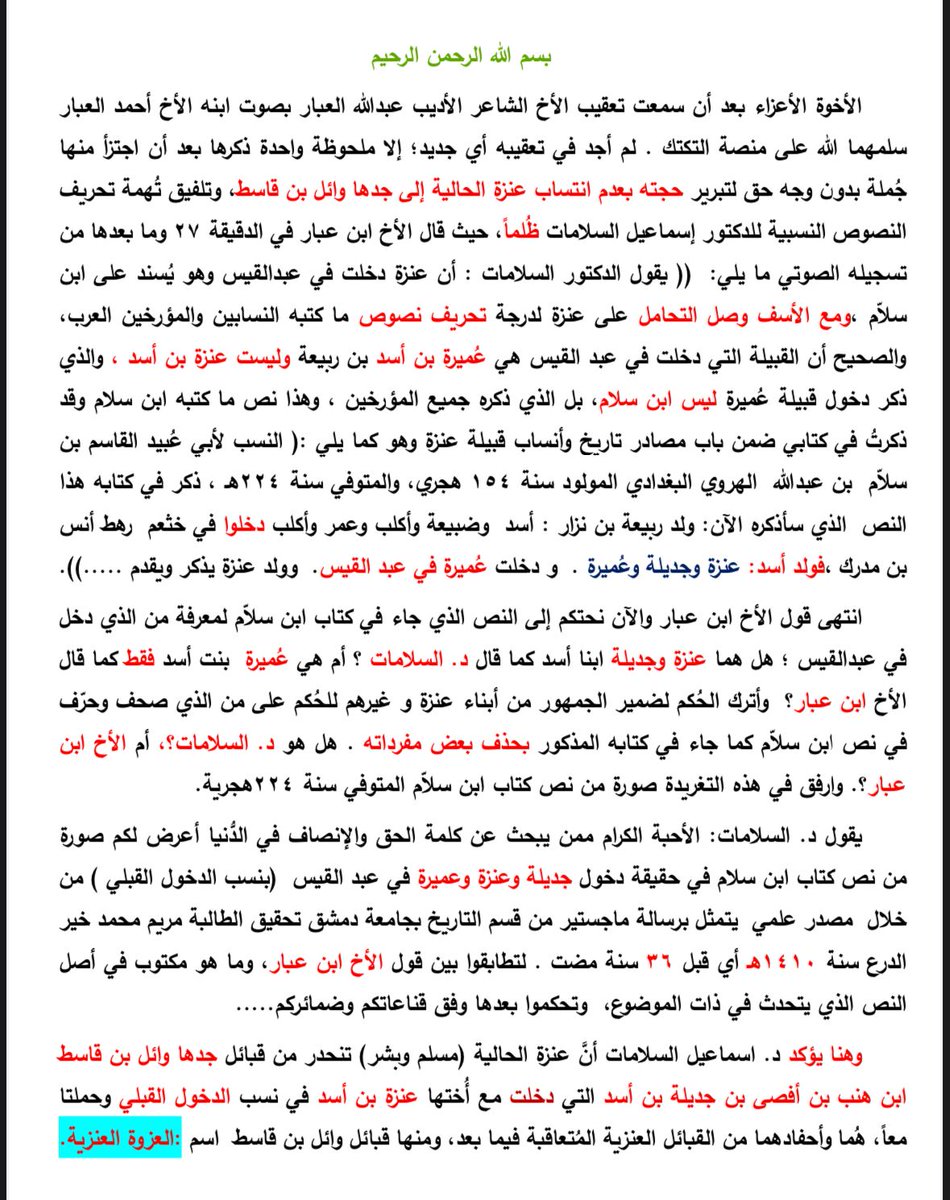 بسم الله الرحمن الرحيم
الأخوة الأعزاء بعد أن سمعت تعقيب الأخ الشاعر الأديب عبدالله العبار بصوت ابنه الأخ أحمد العبار
سلمهما الله على منصة التكتك . لم أجد في تعقيبه أي جديد؛ إلا ملحوظة واحدة ذكرها بعد أن اجتزأ منها
جُملة بدون وجه حق لتبرير حجته بعدم انتساب عنزة الحالية إلى جدها وائل بن قاسط، وتلفيق تُهمة تحريف
النصوص النسبية للدكتور إسماعيل السلامات ظُلماً، حيث قال الأخ ابن عبار في الدقيقة ٢٧ وما بعدها من
تسجيله الصوتي ما يلي: (( يقول الدكتور السلامات : أن عنزة دخلت في عبدالقيس وهو يُسند على ابن
سلاّم ،ومع الأسف وصل التحامل على عنزة لدرجة تحريف نصوص ما كتبه النسابين والمؤرخين العرب،
والصحيح أن القبيلة التي دخلت في عبد القيس هي عُميرة بن أسد بن ربيعة وليست عنزة بن أسد ، والذي
ذكر دخول قبيلة عُميرة ليس ابن سلام، بل الذي ذكره جميع المؤرخين ، وهذا نص ما كتبه ابن سلام وقد
ذكرتُ في كتابي ضمن باب مصادر تاريخ وأنساب قبيلة عنزة وهو كما يلي :( النسب لأبي عُبيد القاسم بن
سلاّم بن عبدالله الهروي البغدادي المولود سنة ١٥٤ هجري، والمتوفي سنة ٢٢٤هـ ، ذكر في كتابه هذا
النص الذي سأذكره الآن: ولد ربيعة بن نزار : أسد وضبيعة وأكلب وعمر وأكلب دخلوا في خثعم رهط أنس
بن مدرك ،فولد أسد: عنزة وجديلة وعُميرة . و دخلت عُميرة في عبد القيس. وولد عنزة يذكر ويقدم .....)).
انتهى قول الأخ ابن عبار والآن نحتكم إلى النص الذي جاء في كتاب ابن سلاّم لمعرفة من الذي دخل
في عبدالقيس ؛ هل هما عنزة وجديلة ابنا أسد كما قال د. السلامات ؟ أم هي عُميرة بنت أسد فقط كما قال
الأخ ابن عبار؟ وأترك الحُكم لضمير الجمهور من أبناء عنزة و غيرهم للحُكم على من الذي صحف وحرّف
في نص ابن سلاّم كما جاء في كتابه المذكور بحذف بعض مفرداته . هل هو د. السلامات؟، أم الأخ ابن
عبار؟. وارفق في هذه التغريدة صورة من نص كتاب ابن سلاّم المتوفي سنة ٢٢٤هجرية.
يقول د. السلامات: الأحبة الكرام ممن يبحث عن كلمة الحق والإنصاف في الدُّنيا أعرض لكم صورة
من نص كتاب ابن سلام في حقيقة دخول جديلة وعنزة وعميرة في عبد القيس (بنسب الدخول القبلي ) من
خلال مصدر علمي يتمثل برسالة ماجستير من قسم التاريخ بجامعة دمشق تحقيق الطالبة مريم محمد خير
الدرع سنة ١٤١٠هـ أي قبل ٣٦ سنة مضت . لتطابقوا بين قول الأخ ابن عبار، وما هو مكتوب في أصل
النص الذي يتحدث في ذات الموضوع، وتحكموا بعدها وفق قناعاتكم وضمائركم.....
وهنا يؤكد د. اسماعيل السلامات أنَّ عنزة الحالية (مسلم وبشر) تنحدر من قبائل جدها وائل بن قاسط
ابن هنب بن أفصى بن جديلة بن أسد التي دخلت مع أُختها عنزة بن أسد في نسب الدخول القبلي وحملتا
معاً، هُما وأحفادهما من القبائل العنزية المُتعاقبة فيما بعد، ومنها قبائل وائل بن قاسط اسم :العزوة العنزية.